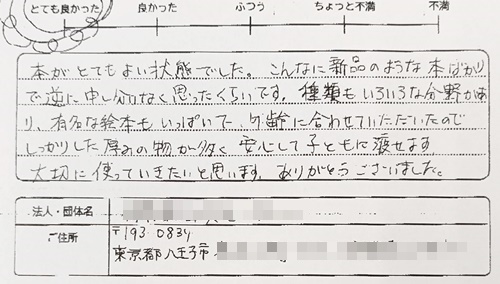 とても良かった 良かった ふつう ちょっと不満 不満
本がとてもよい状態でした。こんなに新品のような本ばかり
で逆に申し分けなく思ったくらいです。種類もいろいろな分野があ
り、有名な絵本もいっぱいで、年齢に合わせていただいたので
しっかりした厚みの物が多く安心して子どもに渡せます
大切に使っていきたいと思います。ありがとうございました。
法人・団体名
ご住所
〒193-0834
東京都八王子市